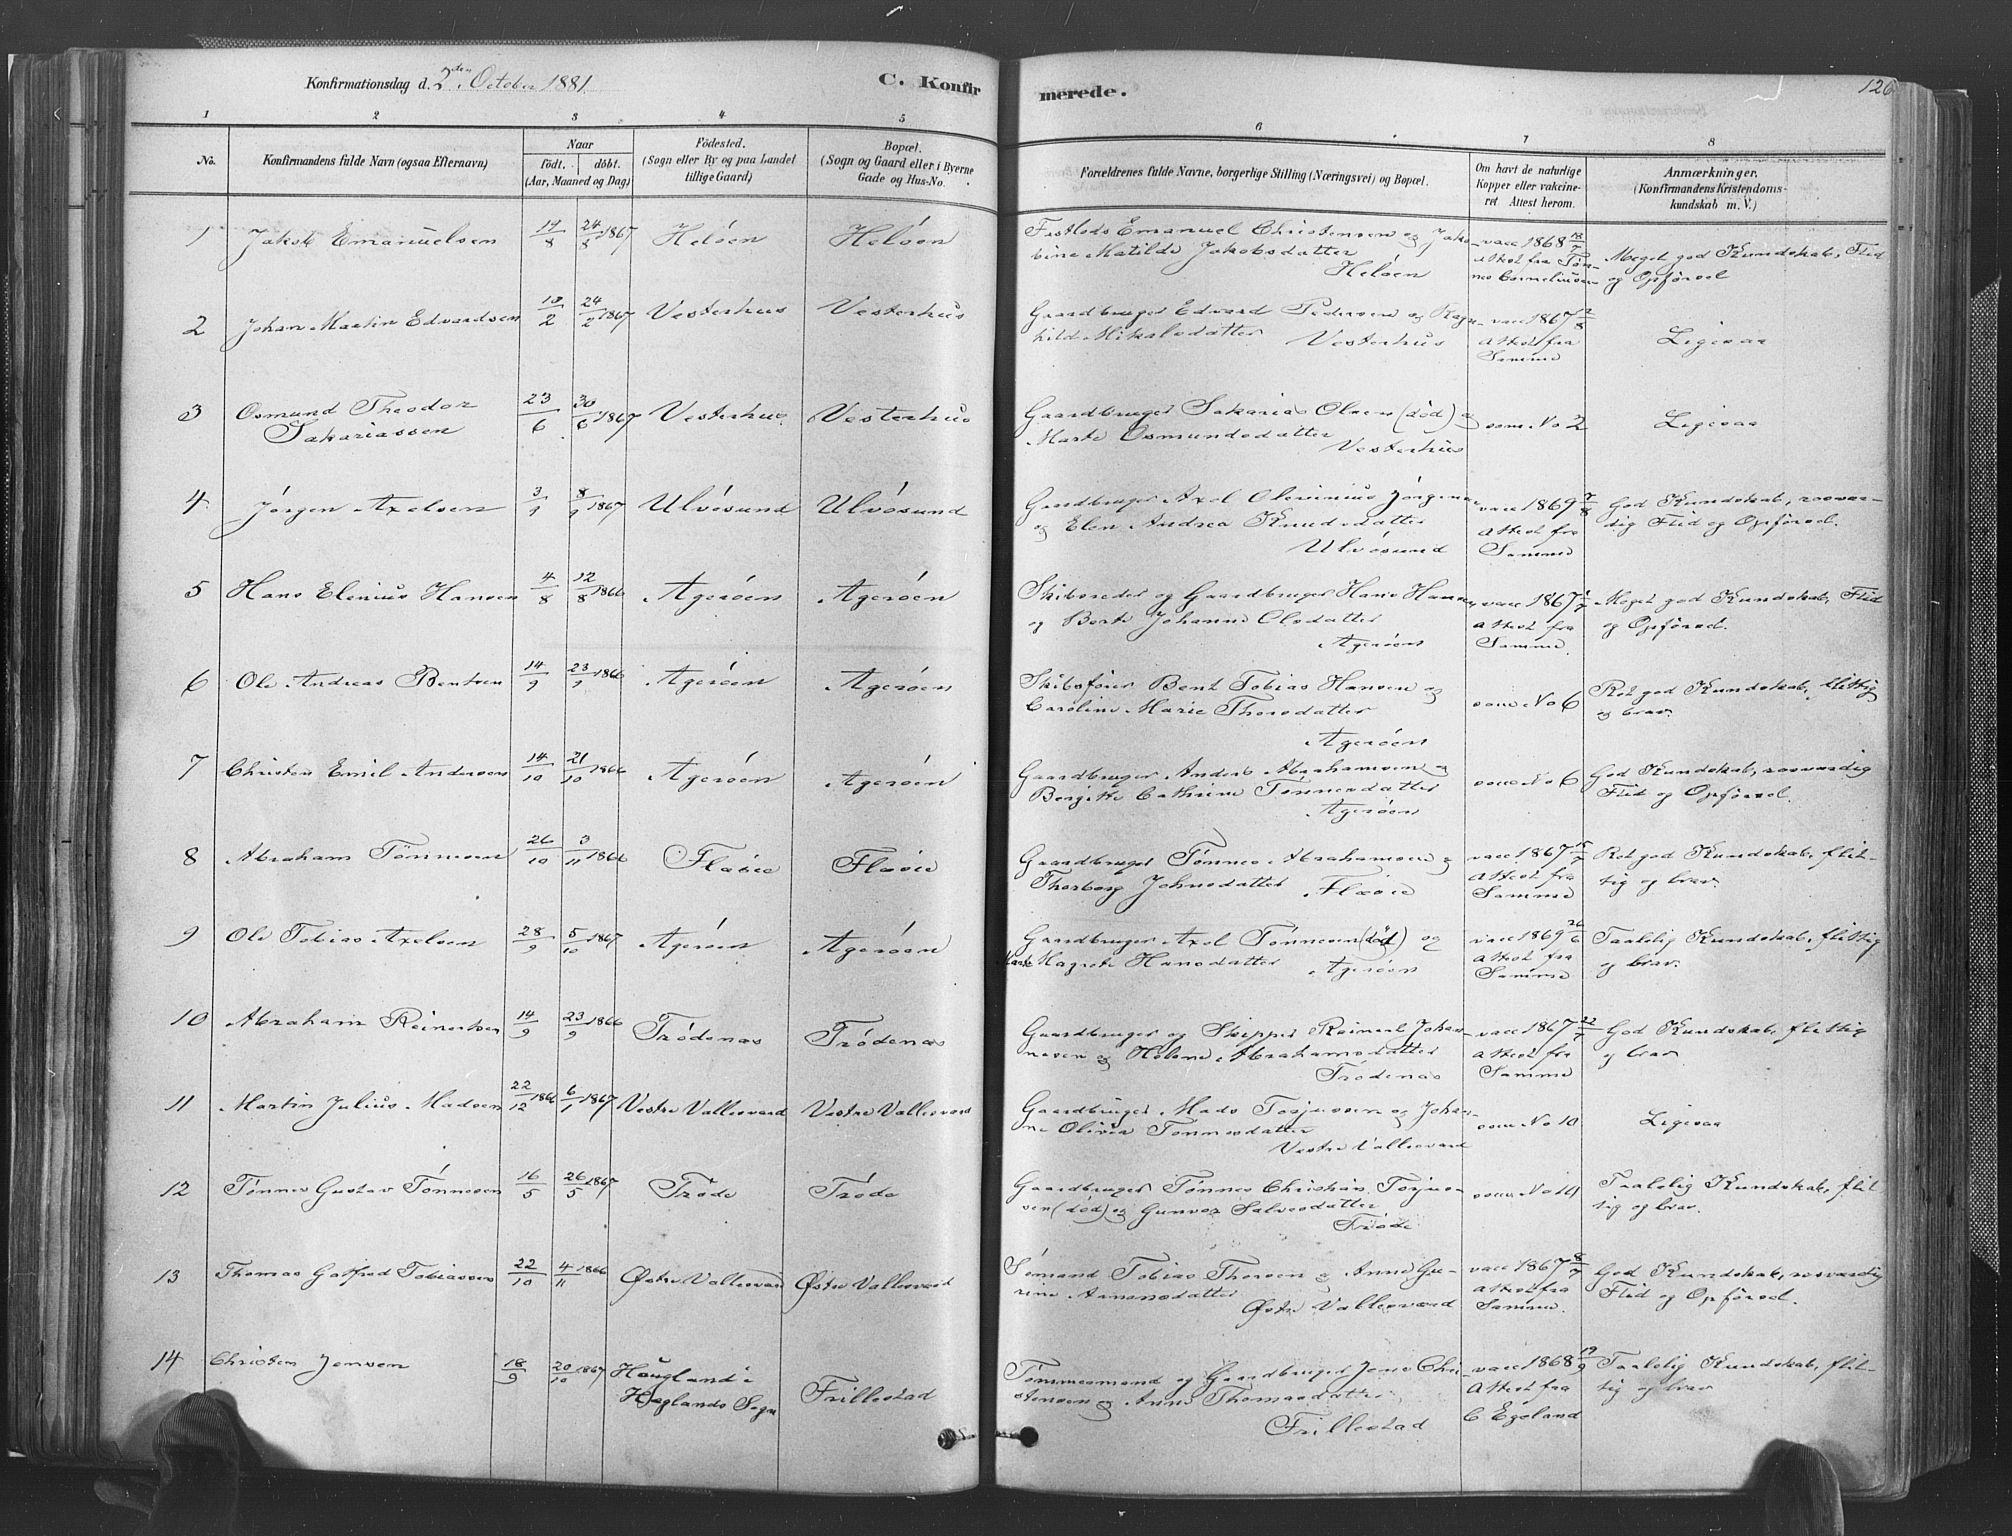 Konfirmationsdag d. 2den October 1881.
C. Konfir
merede.
126
1 2 3 4 5 6 7 8
No. Konfirmandens fulde Navn (ogsaa Efternavn) Naar født. døbt. (Aar, Maaned og Dag)
Fødested. (Sogn eller By og paa Landet tillige Gaard)
Bopæl. (Sogn og Gaard eller i Byerne Gade og Hus-No.
Forældrenes fulde Navne, borgerlige Stilling (Næringsvei) og Bopæl.
Om havt de naturlige Kopper eller vakcineret Attest herom.
Anmærkninger. (Konfirmandens Kristendomskundskab m. V.)
1 Jakob Emanuelsen 24/8 1867 Heløen Heløen
Emanuel Christensen og Jako-
bine Matilde Jakobsdatter
Heløen
vacc 1868
Attest fra Tøn-
nes Corneliussen
Meget god Kundskab, Flid
og Opførsel
2 Johan Martin Edvardsen 24/2 1867 Vesterhus Vesterhus
Gaardbruger Edvard Pedersen og Ragn-
hild Mikalsdatter
Vesterhus
vacc 1867 2/8
Attest fra
Samme
Ligesaa
3 Osmund Theodor
Sakariassen 23/6 30/6 1867 Vesterhus Vesterhus
Gaardbruger Sakarias Olsen (død) og
Marte Osmundsdatter
Vesterhus
som No 2
Ligesaa
4 Jørgen Axelsen 3/9 8/9 1867 Ulvøsund Ulvøsund
Gaardbruger Axel Jørgensen
og Elen Andrea Knudsdatter
Ulvøsund
vacc 1869 7/8
Attest fra
Samme
God Kundskab, rosvær-
dig Flid og Opførsel.
5 Hans Elenius Hansen 4/8 12/8 1866 Agerøen Agerøen
Skibsreder og Gaardbruger Hans Hansen
og Berte Johanne Olsdatter
Agerøen
vacc 1867
Attest fra
Samme
Meget god Kundskab, Flid
og Opførsel.
6 Ole Andreas Bentsen 14/9 23/9 1866 Agerøen Agerøen
Skibsfører Bent Tobias Hansen og
Caroline Marie Thorsdatter
Agerøen
som No 6
Ret god Kundskab, flittig
og brav.
7 Christen Emil Andersen 14/10 21/10 1866 Agerøen Agerøen
Gaardbruger Anders Abrahamsen og
Bergitte Cathrine Tønnesdatter
Agerøen
som No 6
God Kundskab, rosværdig
Flid og Opførsel.
8 Abraham Tønnesen 26/10 3/11 1866 Flaøie Flaøie
Gaardbruger Tønnes Abrahamsen og
Thorborg Johnsdatter Flaøie
vacc 1867
Attest fra
Samme
Ret god Kundskab, flit-
tig og brav.
9 Ole Tobias Axelsen 28/9 5/10 1867 Agerøen Agerøen
Gaardbruger Axel Tønnesen (død) og
Marte Magrete Hansdatter Agerøen
vacc 1869 26/6
Attest fra
Samme
Taalelig Kundskab, flittig
og brav.
10 Abraham Reinertsen 14/9 23/9 1866 Trødenæs Trødenæs
Gaardbruger og Skipper Reinert Johan-
nesen og Helene Abrahamsdatter
Trødenæs
vacc 1867 22/7
Attest fra
Samme
God Kundskab, flittig
og brav
11 Martin Julius Madsen 22/12 1866 6/1 1867 Vestre Vallesværd Vestre Vallesværd
Gaardbruger Mads Tosjussen og Johan-
ne Olivia Tønnesdatter
Vestre Vallesværd
som No 10
Ligesaa
12 Tønnes Gustav Tønnesen 16/5 26/5 1867 Trøde Trøde
Gaardbruger Tønnes Christian Tosjus-
sen (død) og Gunvor Salvesdatter
Trøde
som No 10
Taalelig Kundskab, flit-
tig og brav.
13 Thomas Gotfred Tobiassen 22/10 4/11 1866 Østre Vallesværd Østre Vallesværd
Sømand Tobias Thorsen og Anne Gu-
rine Arnesdatter
Østre Vallesværd
vacc 1867 8/7
Attest fra
Samme.
God Kundskab, rosværdig
Flid og Opførsel.
14 Christen Jensen 18/9 20/10 1867 Haugland i
Høglands Sogn Frillestad
Tømmermand og Gaardbruger Jens Chri-
stensen og Anne Thomasdatter
Frillestad
vacc 1868 19/9
Attest fra
C Egeland
Taalelig Kundskab, flit-
tig og brav